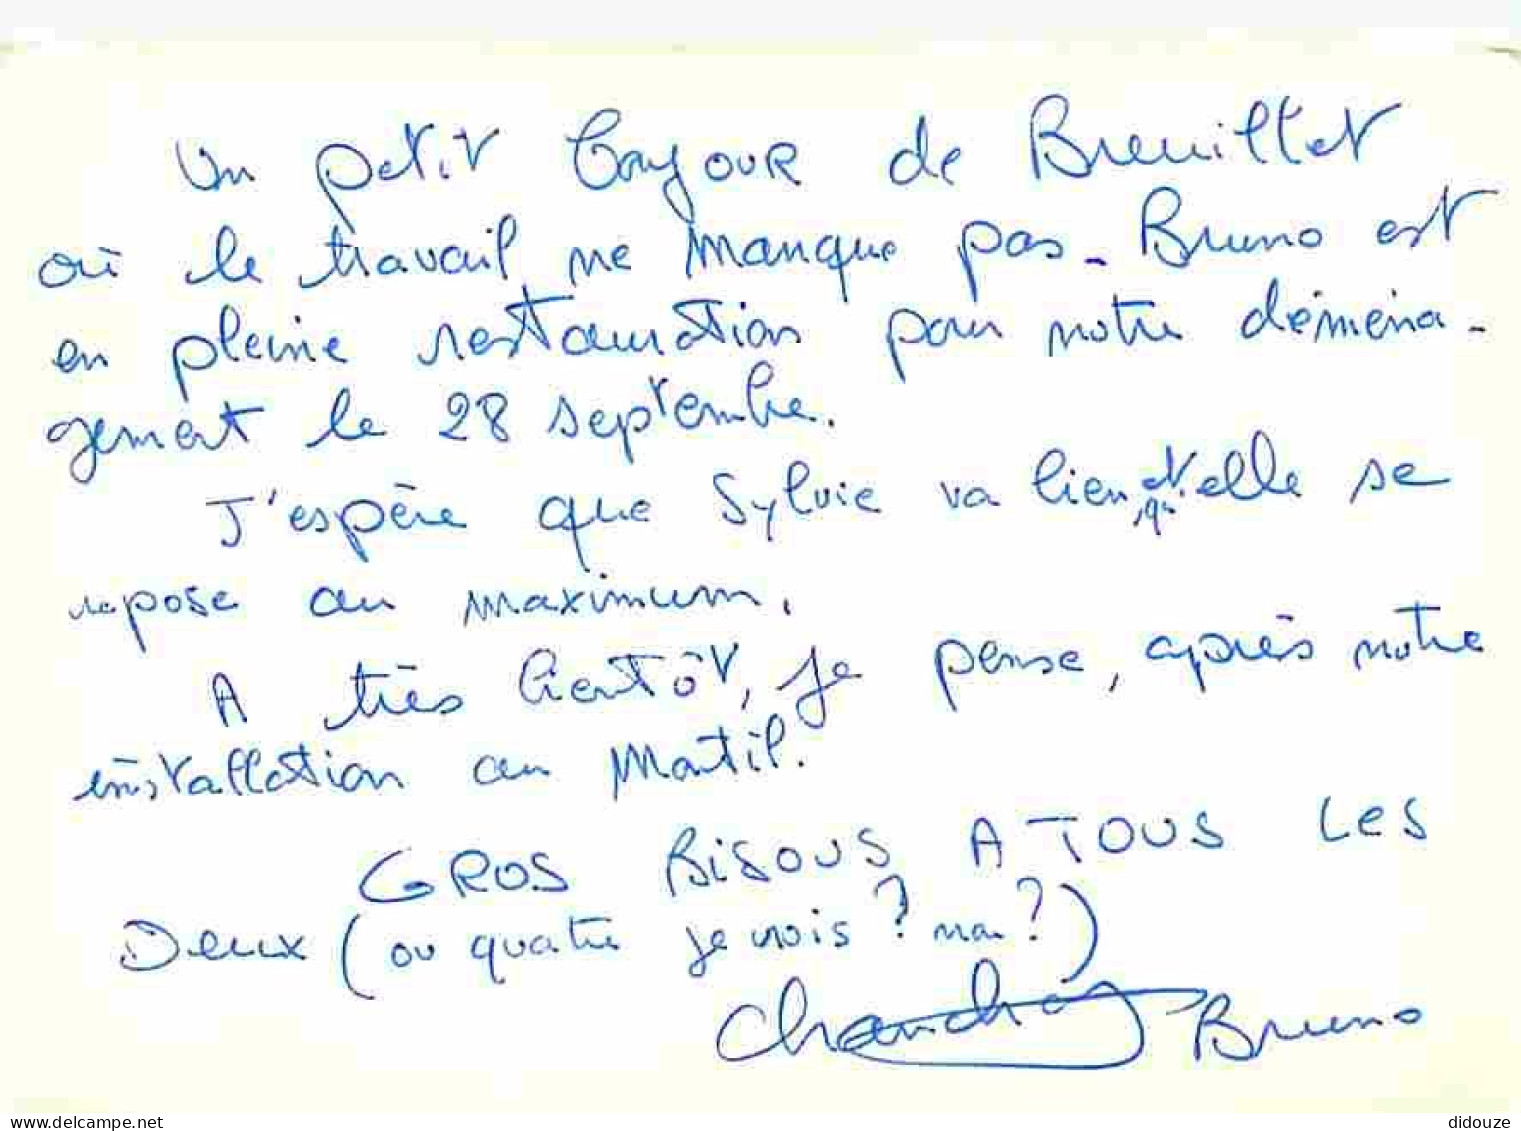 Un petit bonjour de Breuillet
où le travail ne manque pas - Bruno est
en pleine restauration pour notre déména-
gement le 28 septembre.
J'espère que Sylvie va bien et qu'elle se
repose au maximum.
A très bientôt, je pense, après notre
installation au Mortil.
GROS BISOUS A TOUS LES
Deux (ou quatre je crois ? non ?)
Bruno
www.delcampe.net
didouze